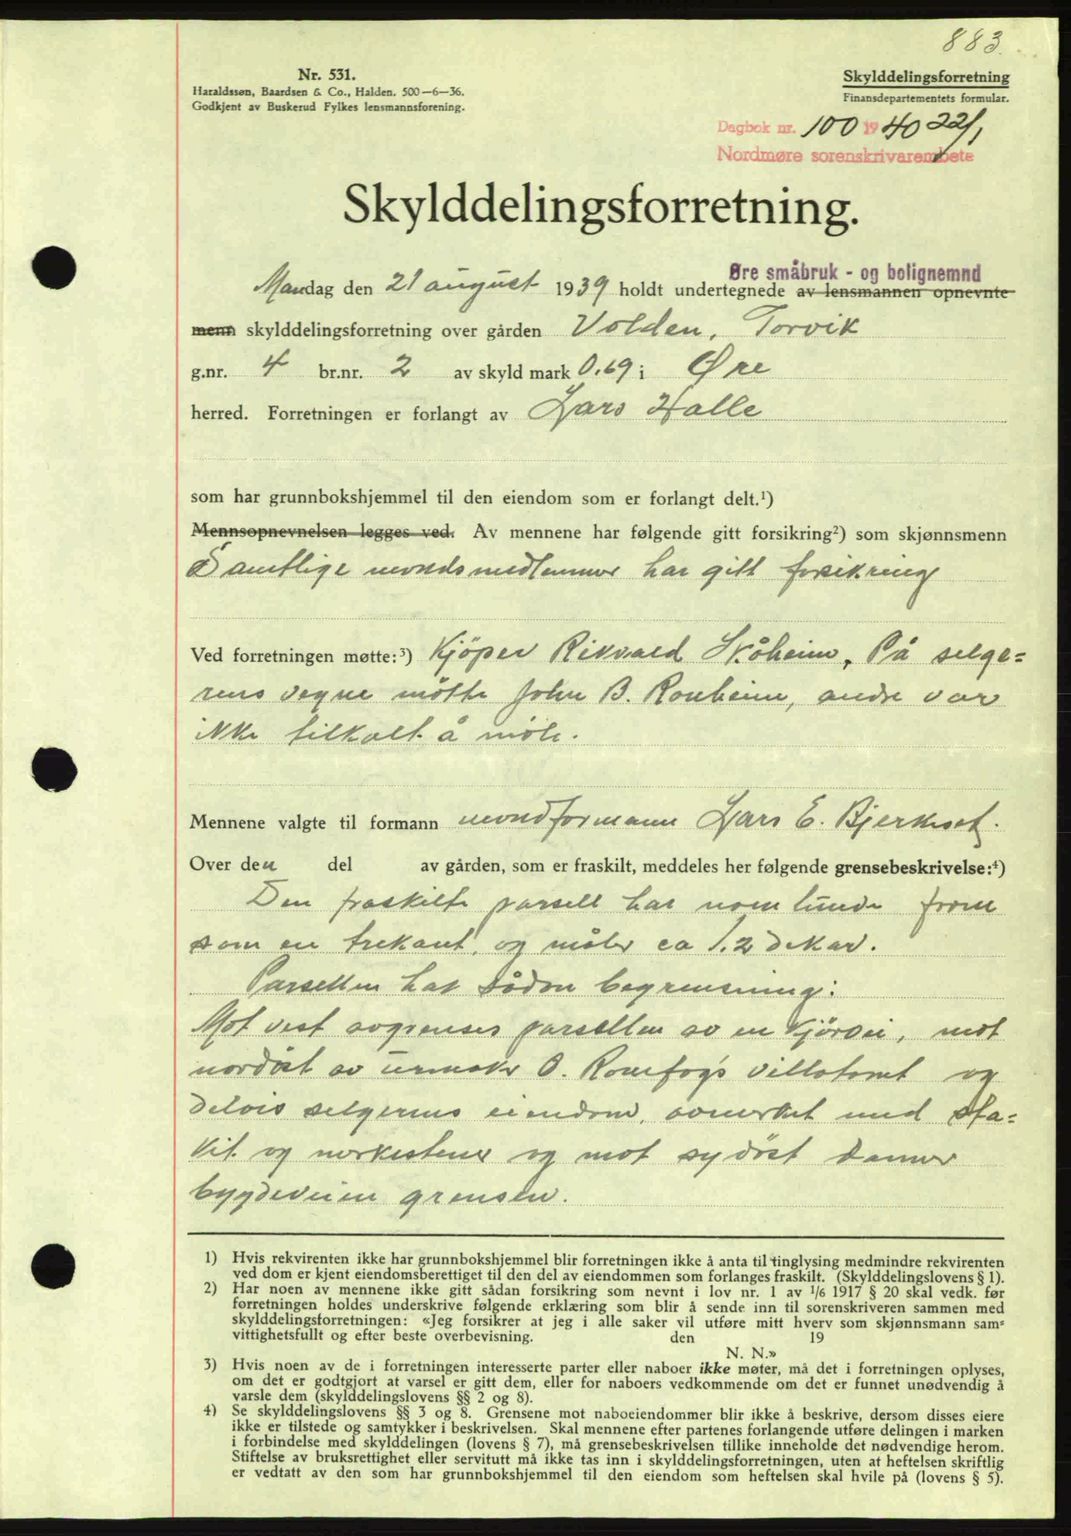 883.
Nr. 531.
Haraldssøn, Baardsen & Co., Halden. 500—6—36.
Godkjent av Buskerud Fylkes lensmannsforening.
Skylddelingsforretning
Finansdepartementets formular.
Dagbok nr. 100 1940 22/1
Nordmøre sorenskrivarembete
Skylddelingsforretning.
Øre småbruk - og bolignemnd
Mandag den 21 august 1939 holdt undertegnede av lensmannen opnevnte
menn skylddelingsforretning over gården Volden, Torvik
g.nr. 4 br.nr. 2 av skyld mark 0.69 i Øre
herred. Forretningen er forlangt av Lars Halle
som har grunnbokshjemmel til den eiendom som er forlangt delt.¹)
Mennsopnevnelsen legges ved. Av mennene har følgende gitt forsikring²) som skjønnsmenn
Samtlige nevndsmedlemmer har gitt forsikring
Ved forretningen møtte:³) Kjöper Rikvald Skåheim, På selge=
rens vegne mötte John B. Ronheim, andre var
ikke tilkalt å möte.
Mennene valgte til formann nevndformann Lars E. Bjerkeset.
Over den del av gården, som er fraskilt, meddeles her følgende grensebeskrivelse:⁴)
Den fraskilte parsell har noenlunde form
som en trekant, og måler ca 1.2 dekar.
Parsellen har sådan begrensning:
Mot vest avgrenses parsellen av en kjörvei, mot
nordöst av urmaker O. villatomt og
delvis selgerens eiendom, avmerket med sta=
kit og merkestener og mot sydöst danner
bygdeveien grensen.
1) Hvis rekvirenten ikke har grunnbokshjemmel blir forretningen ikke å anta til tinglysing medmindre rekvirenten
ved dom er kjent eiendomsberettiget til den del av eiendommen som forlanges fraskilt. (Skylddelingslovens § 1).
2) Har noen av mennene ikke gitt sådan forsikring som nevnt i lov nr. 1 av ¹/₆ 1917 § 20 skal vedk. før
forretningen holdes underskrive følgende erklæring som blir å sende inn til sorenskriveren sammen med
skylddelingsforretningen: «Jeg forsikrer at jeg i alle saker vil utføre mitt hverv som skjønnsmann sam=
vittighetsfullt og efter beste overbevisning. den 19
N. N.»
3) Hvis noen av de i forretningen interesserte parter eller naboer ikke møter, må det i forretningen oplyses,
om det er godtgjort at varsel er gitt dem, eller for naboers vedkommende om det er funnet unødvendig å
varsle dem (skylddelingslovens §§ 2 og 8).
4) Se skylddelingslovens §§ 3 og 8. Grensene mot naboeiendommer blir ikke å beskrive, dersom disses eiere
ikke er tilstede og samtykker i beskrivelsen. Skal mennene efter partenes forlangende utføre delingen i marken
i forbindelse med skylddelingen (lovens § 7), må grensebeskrivelsen tillike inneholde det nødvendige herom.
Stiftelse av bruksrettighet eller servitutt må ikke tas inn i skylddelingsforretningen, uten at heftelsen skriftlig
er vedtatt av den som har grunnbokshjemmel til den eiendom som heftelsen skal hvile på (lovens § 5).